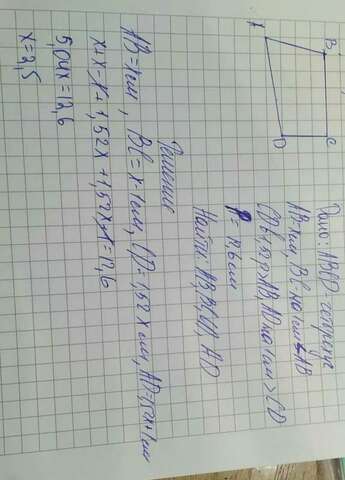 A
B
C
D
Дано: ABCD-четырехуг.
AB=x см, BC-на 1 см < AB
CD в 1,52 > AB, AD на 1 см > CD
P = 12,6 см
Найти: AB, BC, CD, AD
Решение
AB=x см, BC=x-1 см, CD=1,52x см, AD=1,52x+1 см
x+x-1+1,52x+1,52x+1=12,6
5,04x=12,6
x=2,5